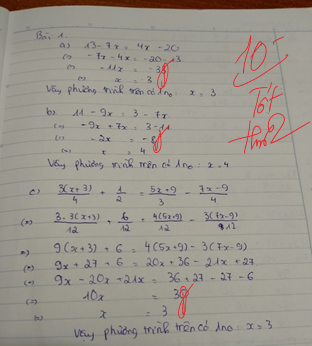 Bài 1.
a) 13-7x = 4x-20
(=) -7x-4x = -20-13
(=) -11x = -33
(=) x = 3
Vậy phương trình trên có 1 no: x = 3
10
Tốt
b) 11 - 9x = 3 - 7x
(=) -9x + 7x = 3-11
(=) -2x = -8
(=) x = 4
Vậy phương trình trên có 1 no: x = 4
c) 3(x+3)/4 + 1/2 = 5x+9/3 - 7x-9/4
(=) 3.3(x+3)/12 + 6/12 = 4(5x+9)/12 - 3(7x-9)/12
(=) 9(x+3) + 6 = 4(5x+9) - 3(7x-9)
(=) 9x + 27 + 6 = 20x + 36 - 21x + 27
(=) 9x - 20x + 21x = 36 + 27 - 27 - 6
(=) 10x = 30
(=) x = 3
Vậy phương trình trên có 1 no: x = 3